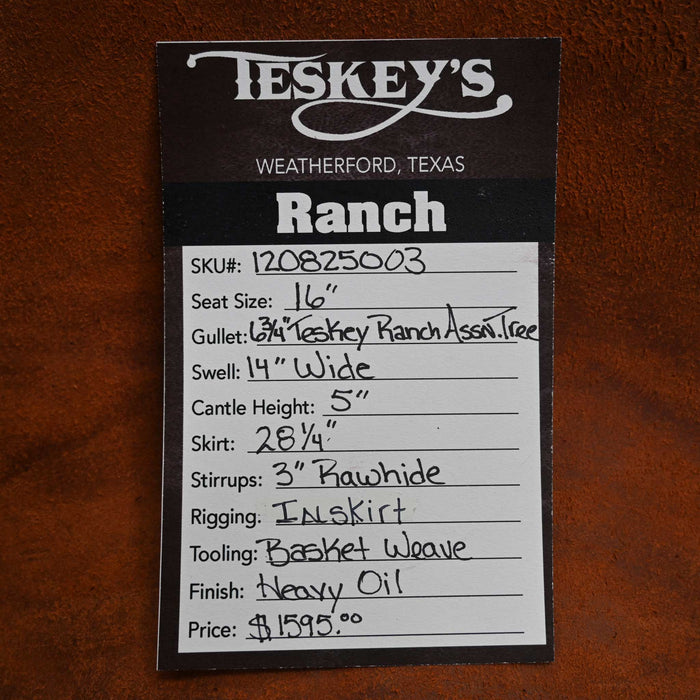 TESKEY'S
WEATHERFORD, TEXAS
Ranch
SKU#: 120825003
Seat Size: 16"
Gullet: 6 3/4" Teskey Ranch Assn. Tree
Swell: 14" Wide
Cantle Height: 5"
Skirt: 28 1/4"
Stirrups: 3" Rawhide
Rigging: Inskirt
Tooling: Basket Weave
Finish: Heavy Oil
Price: $1595.00